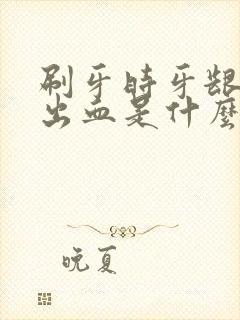 刷牙时牙龈
出血是什麼
晚夏